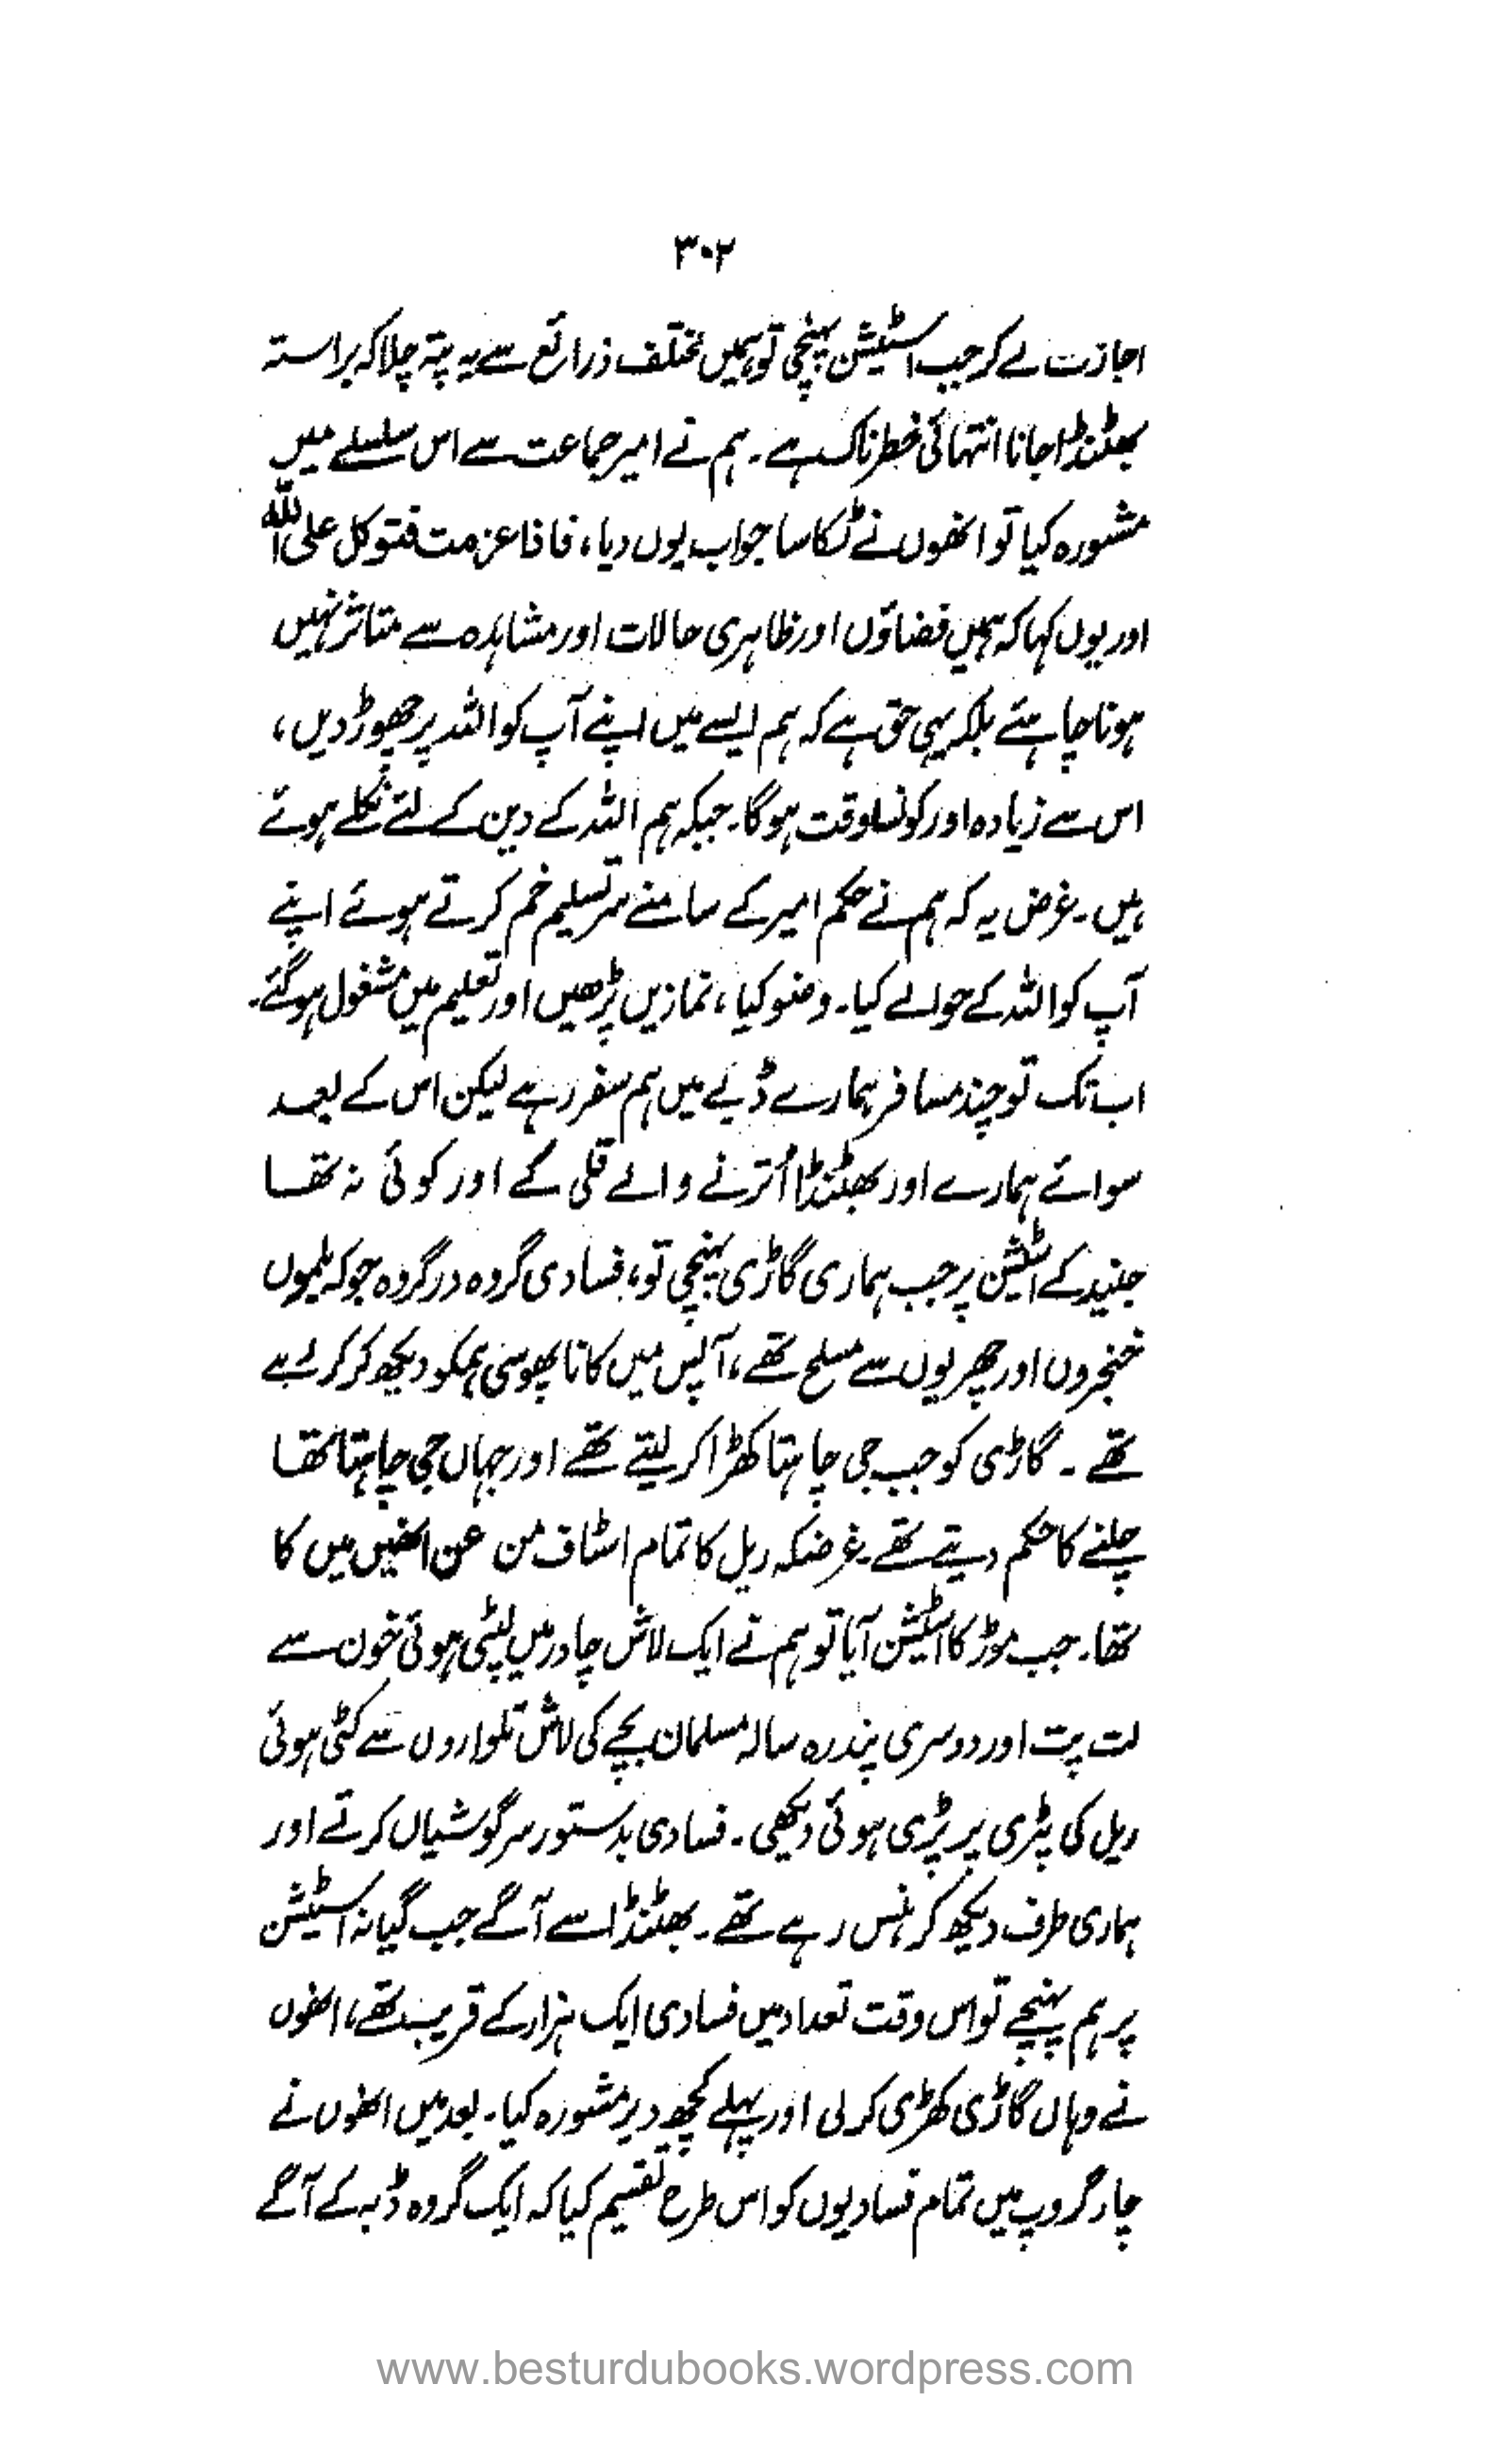 ۳۰۲
اجازت لے کر جب اسٹیشن پہنچی تو ہمیں مختلف ذرائع سے یہ پتہ چلا کہ براستہ
بھٹنڈا جانا انتہائی خطرناک ہے۔ ہم نے امیر جماعت سے اس سلسلے میں
مشورہ کیا تو انھوں نے ٹکا سا جواب یوں دیا، فاذا عزمت فتوکل علی اللہ
اور یوں کہا کہ ہمیں فضاؤں اور ظاہری حالات اور مشاہدہ سے متاثر نہیں
ہونا چاہئے بلکہ یہی حق ہے کہ ہم ایسے میں اپنے آپ کو اللہ پر چھوڑ دیں،
اس سے زیادہ اور کونسا وقت ہوگا۔ جبکہ ہم اللہ کے دین کے لئے نکلے ہوئے
ہیں۔ غرض یہ کہ ہم نے حکم امیر کے سامنے سر تسلیم خم کرتے ہوئے اپنے
آپ کو اللہ کے حوالے کیا۔ وضو کیا، نمازیں پڑھیں اور تعلیم میں مشغول ہوگئے۔
اب تک تو چند مسافر ہمارے ڈبے میں ہم سفر رہے لیکن اس کے بعد
سوائے ہمارے اور بھٹنڈا اُترنے والے قلی کے اور کوئی نہ تھا
جنید کے اسٹیشن پر جب ہماری گاڑی پہنچی تو، فسادی گروہ در گروہ جو کہ بلموں
خنجروں اور چھریوں سے مسلح تھے، آپس میں کانا پھوسی ہمکو دیکھ کر کر رہے
تھے۔ گاڑی کو جب جی چاہتا کھڑا کر لیتے تھے اور جہاں جی چاہتا تھا
چلنے کا حکم دیتے تھے۔ غرضکہ ریل کا تمام اسٹاف من عن انھیں میں کا
تھا۔ جب موڑ کا اسٹیشن آیا تو ہم نے ایک لاش چادر میں لپٹی ہوئی خون سے
لت پت اور دوسری پندرہ سالہ مسلمان بچے کی لاش تلواروں سے کٹی ہوئی
ریل کی پٹری پر پڑی ہوئی دیکھی۔ فسادی بدستور سرگوشیاں کرتے اور
ہماری طرف دیکھ کر ہنس رہے تھے۔ بھٹنڈا سے آگے جب گیانہ اسٹیشن
پر ہم پہنچے تو اس وقت تعداد میں فسادی ایک ہزار کے قریب تھے، انھوں
نے وہاں گاڑی کھڑی کر لی اور پہلے کچھ دیر مشورہ کیا۔ بعد میں انھوں نے
چار گروپ میں تمام فسادیوں کو اس طرح تقسیم کیا کہ ایک گروہ ڈبہ کے آگے
www.besturdubooks.wordpress.com